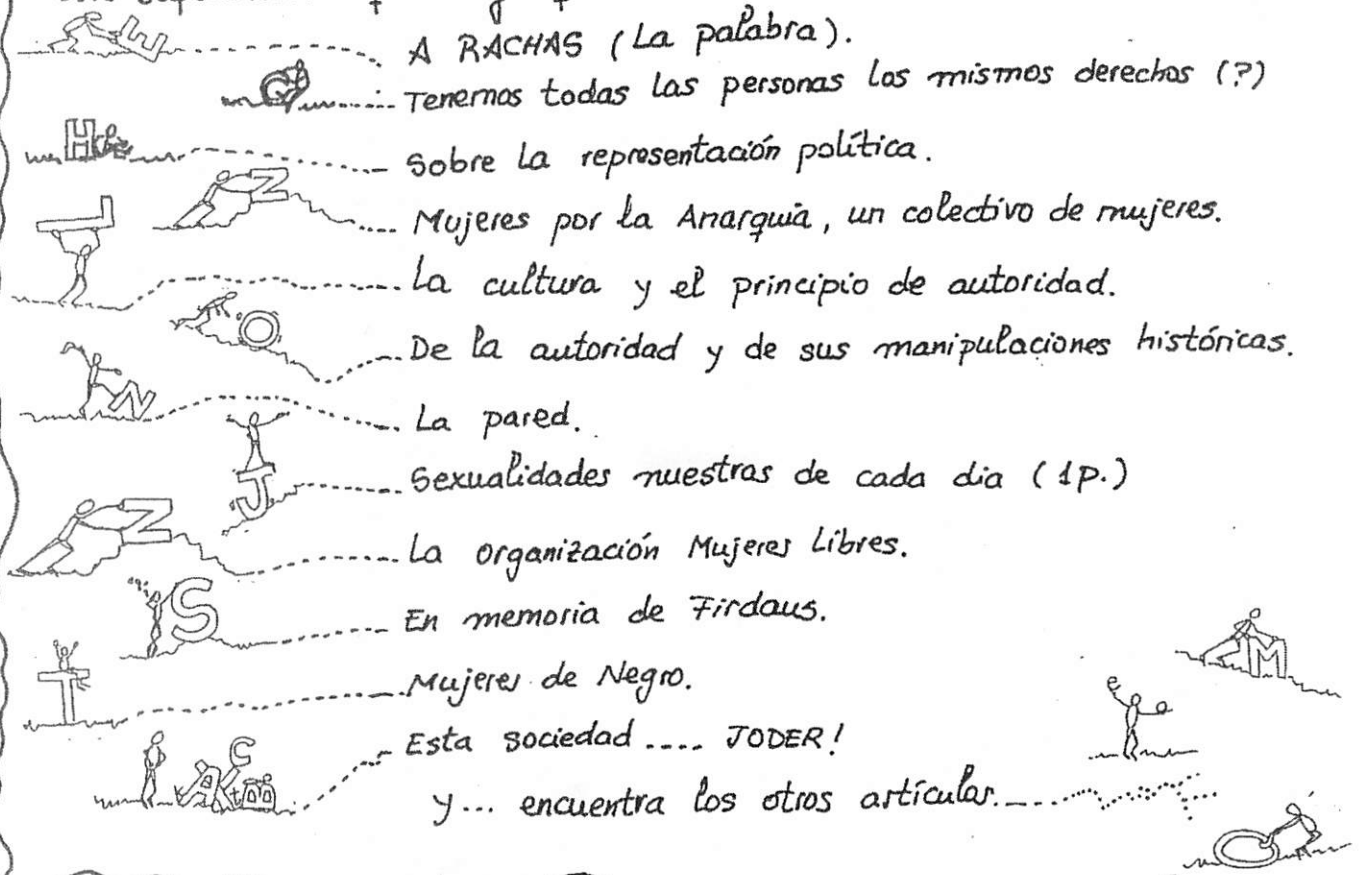 A RACHAS (La palabra).
Tenemos todas las personas los mismos derechos (?)
Sobre la representación política.
Mujeres por la Anarquía, un colectivo de mujeres.
La cultura y el principio de autoridad.
De la autoridad y de sus manipulaciones históricas.
La pared.
Sexualidades nuestras de cada dia (1p.)
La organización Mujeres Libres.
En memoria de Firdaus.
Mujeres de Negro.
Esta sociedad .... JODER!
y... encuentra los otros artículos.